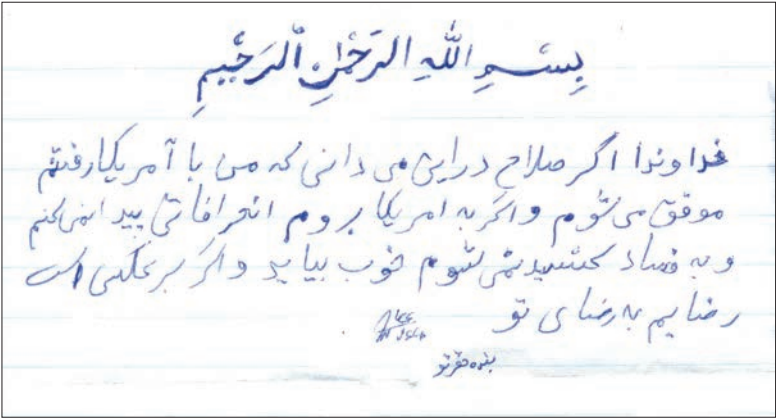 بِسْمِ اللهِ الرَّحْمٰنِ الرَّحِيمِ
خداوندا اگر صلاح در این می دانی که من با آمریکا رفتنم
موفق می شوم و اگر به امریکا بروم انحرافاتی پیدا نمی کنم
و به فساد کشیده نمی شوم خوب بیاید و اگر برعکس است
رضایم به رضای تو
بنده حقیر تو